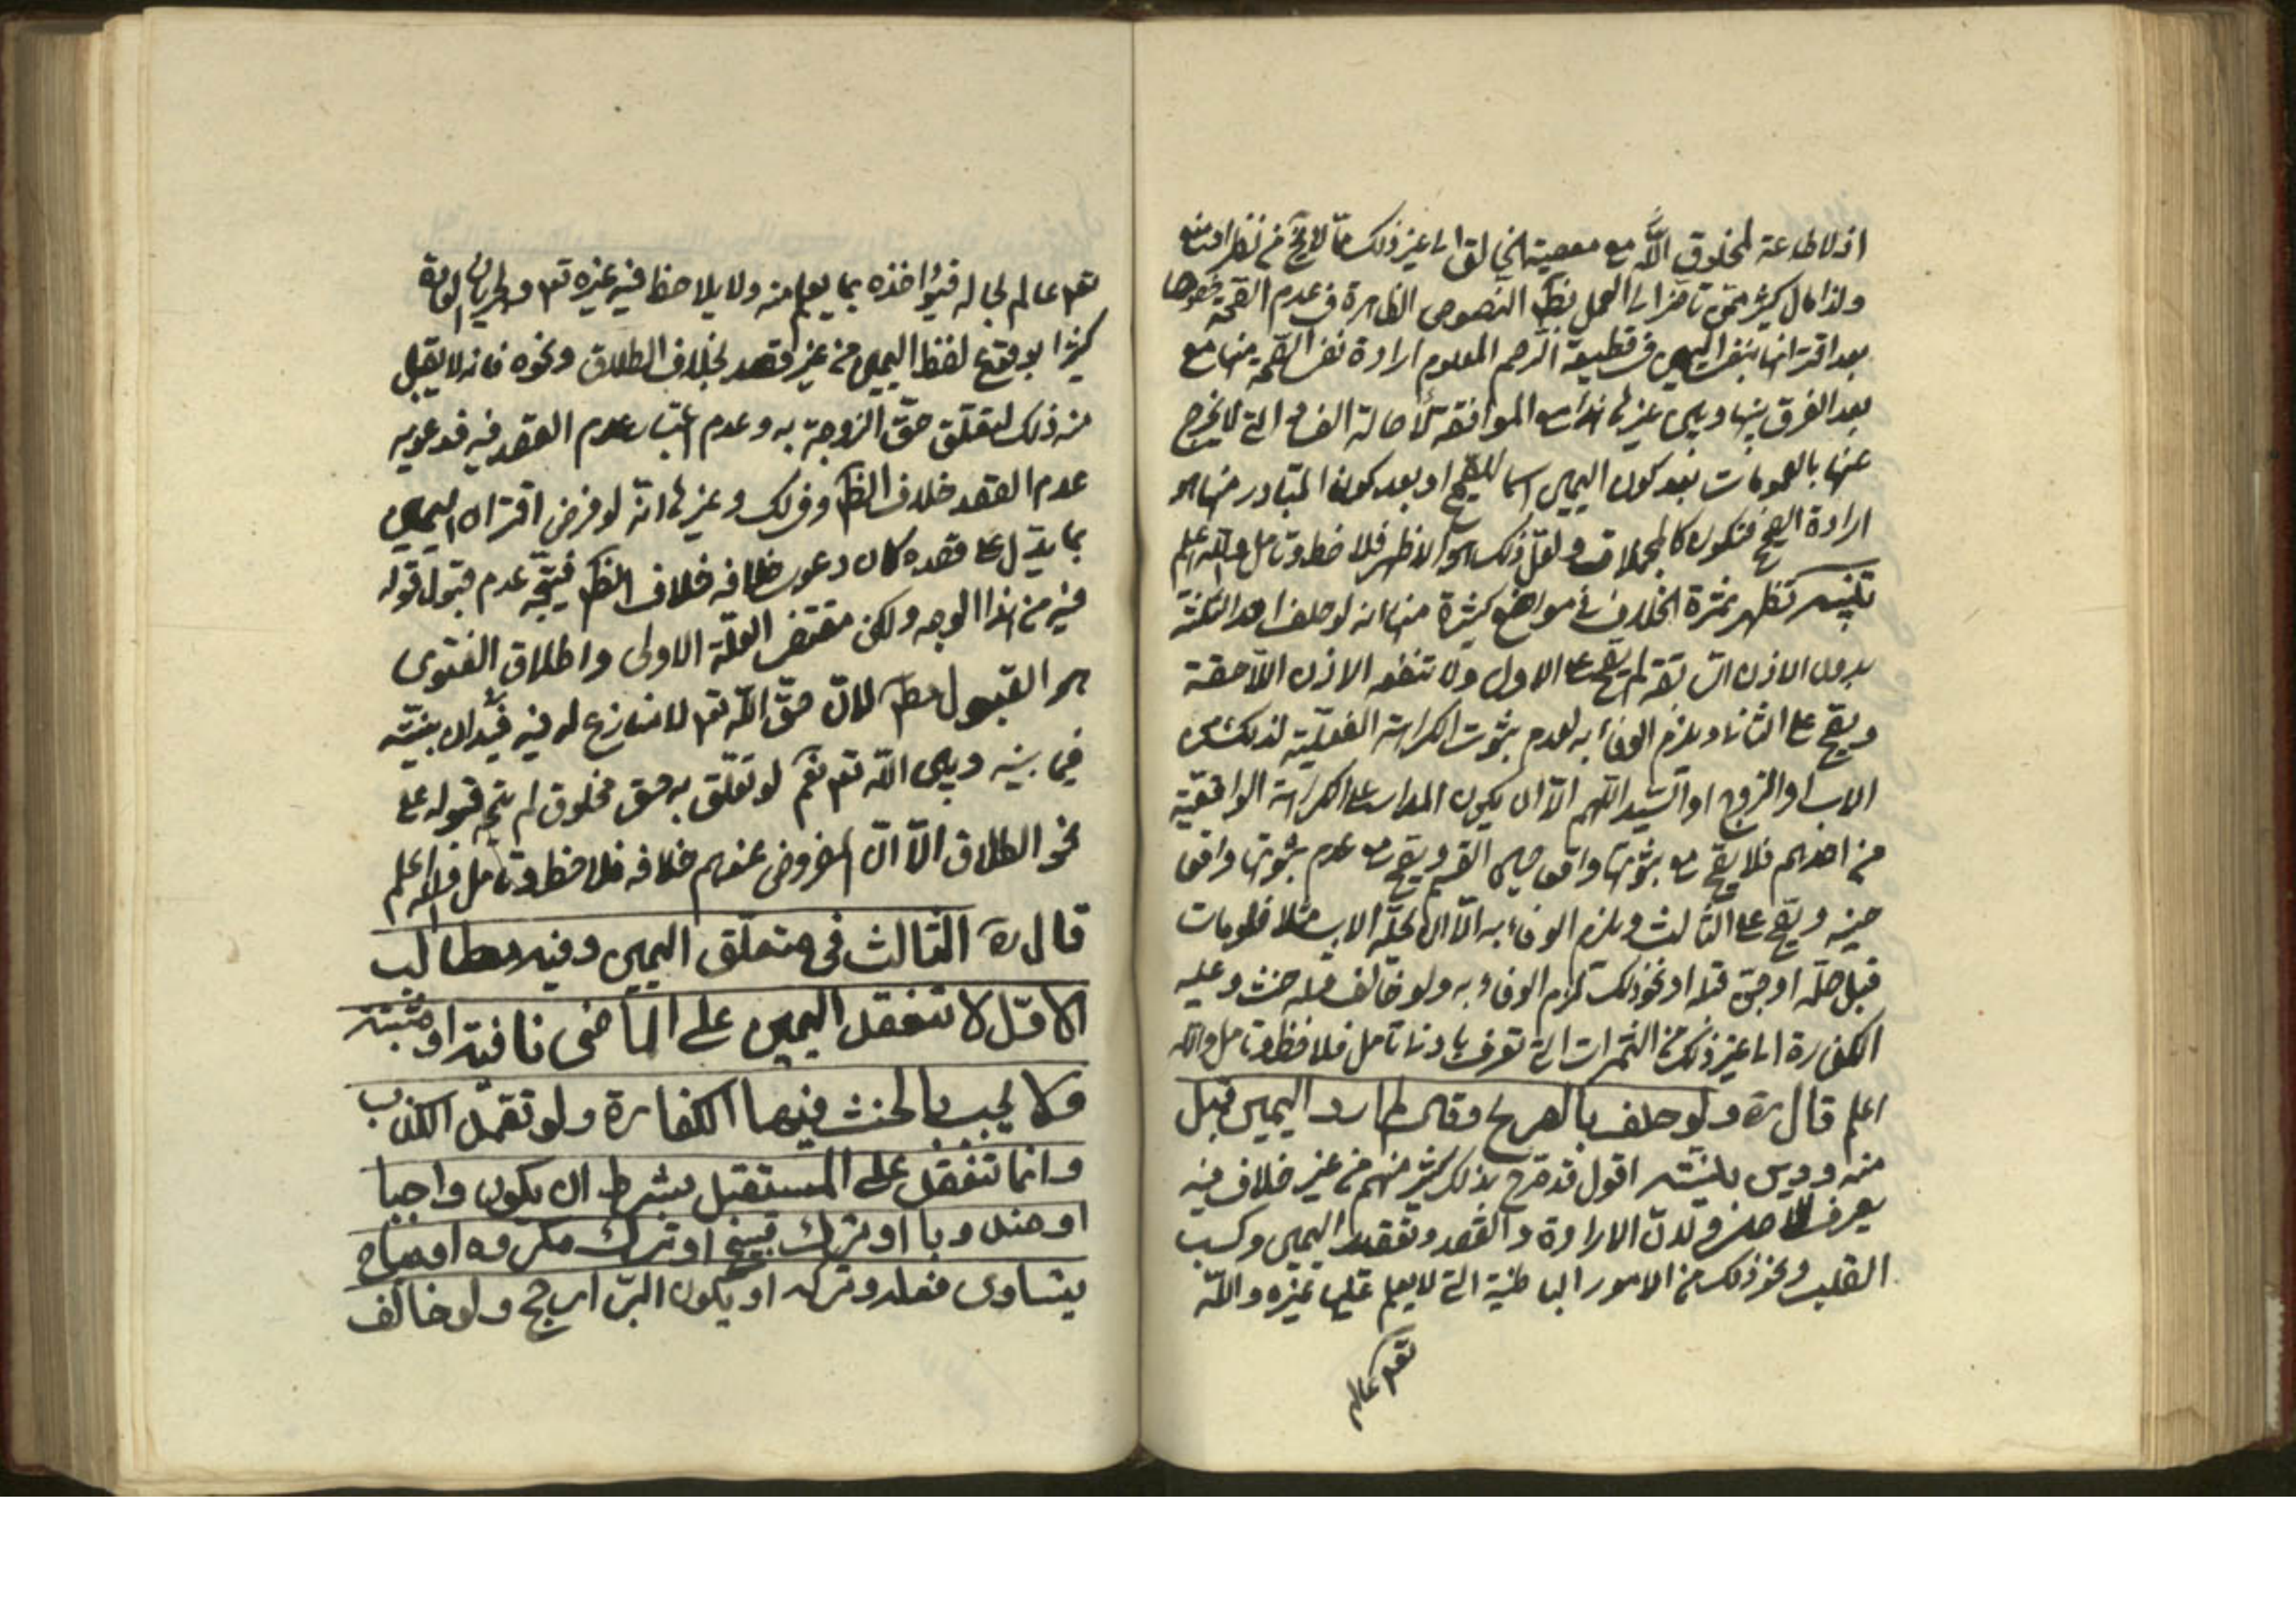 اذ لا طاعة لمخلوق الله مع معصية الخالق الى غير ذلك مما لا يخ من نظر امتنع
ولذا مال كثير ممن تاخر الى العمل بظ النصوص الظاهرة في عدم الصحة خصوصا
بعد اقترانها بنفي اليمين في قطيعة الرحم المعلوم ارادة نفي الصحة منها مع
بعد الفرق بينها وبين غيرها الموافقة لاصالة التي لا يخرج
عنها بالعمومات بعد كون اليمين اسما للصحيح او بعد كون المتبادر منها هو
ارادة الصحيح فتكون كالمجملات ولعل ذلك هو الاظهر فلاحظ وتامل والله اعلم
تظهر ثمرة الخلاف في مواضع كثيرة منها انه لو حلف احد الثلثة
بدون الاذن السابقة لم يصح على الاول ولا تنفعه الاذن اللاحقة
ويصح على الثاني ويلزم الوفاء به لعدم ثبوت الكراهة الفعلية لذلك من
الاب او الزوج او السيد اللهم الا ان يكون المدار على الكراهة الواقعية
من احدهم فلا يصح مع ثبوتها واقعا حين القسم ويصح مع عدم ثبوتها واقعا
حينه ويصح على الثالث ويلزم الوفاء به الا ان يحله الاب مثلا فلو مات
قبل حله او جن قبله او نحو ذلك لزم الوفاء به ولو خالف قبله حنث وعليه
الكفارة الى غير ذلك من الثمرات التي تعرف بادنى تامل فلاحظ وتامل والله
اعلم قال ره ولو حلف بالصريح وقال لم ارد اليمين قبل
منه ودين بنيته اقول قد صرح بذلك كثير منهم من غير خلاف فيه
يعرف للاصل ولان الارادة والقصد وتعقيد اليمين وكسب
القلب ونحو ذلك من الامور الباطنية التي لا يعلم عليها غيره والله
تعم عالم
تعم عالم بحاله فيؤاخذه بما يعلم منه ولا يلاحظ فيه غيره تعم ولجريان العادة
كثيرا بوقوع لفظ اليمين من غير قصد بخلاف الطلاق ونحوه فانه لا يقبل
منه ذلك لتعلق حق الزوجة به وعدم اعتياد عدم القصد فيه فدعويه
عدم القصد خلاف الظ وفي لك وغيرها انه لو فرض اقتران اليمين
بما يدل على قصده كان دعوى خلافه خلاف الظ فيتجه عدم قبول قوله
فيه من هذا الوجه ولكن مقتضى العلة الاولى واطلاق الفتوى
هو القبول مط لان حق الله تعم لا منازع له فيه فيدان بنيته
فيما بينه وبين الله تعم نعم لو تعلق به حق مخلوق لم يتجه قبوله على
نحو الطلاق الا ان المفروض عندهم خلافه فلاحظ وتامل والله اعلم
قال ره الثالث في متعلق اليمين وفيه مطالب
الاول لا تنعقد اليمين على الماضي نافية او مثبتة
ولا يجب بالحنث فيها الكفارة ولو تعمد الكذب
وانما تنعقد على المستقبل بشرط ان يكون واجبا
او مندوبا او ترك قبيح او ترك مكروه او مباح
يتساوى فعله وتركه او يكون البر ارجح ولو خالف